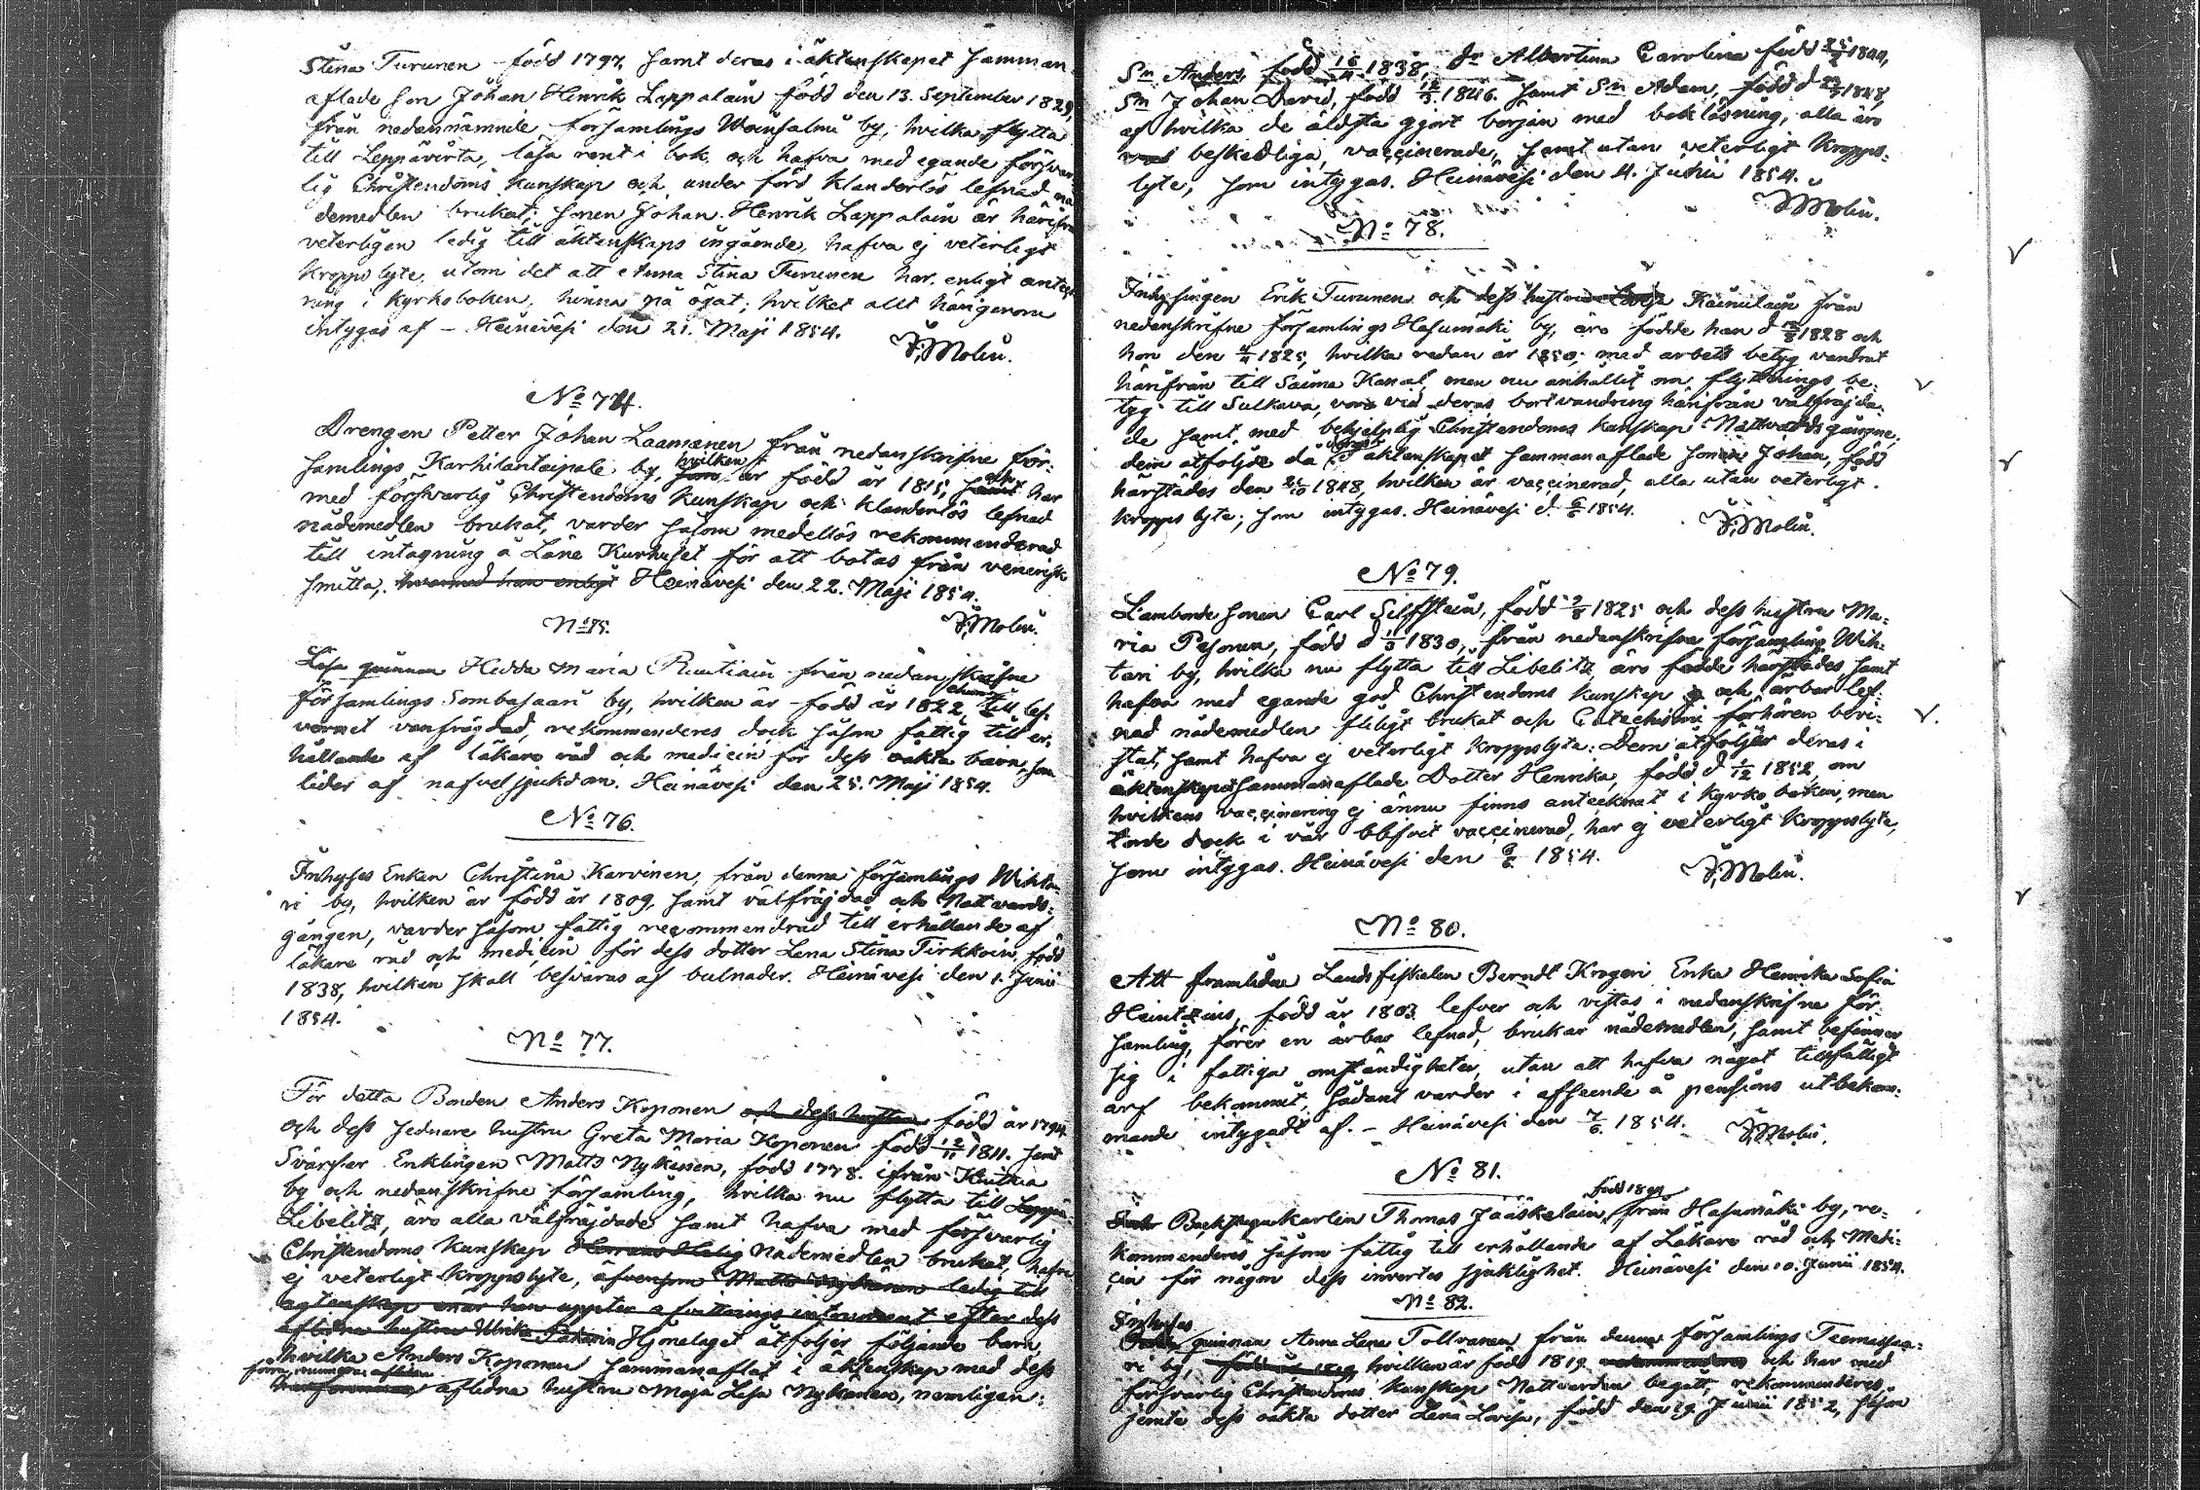 Stina Turunen född 1797, samt deras i äktenskapet samman
aflade son Johan Henrik Lappalain född den 13. September 1829,
från nedannämnde församlings by, hvilka flytta
till Leppävirta, läsa rent i bok och hafva med egande försvar
lig Christendoms kunskap och under förd klanderlös lefnad nå
demedlen brukat; sonen Johan Henrik Lappalain är härifrån
veterligen ledig till äktenskaps ingående, hafva ej veterligt
kroppslyte, utom det att Anna Stina Turunen har, enligt anteck
ning i Kyrkoboken, hinna på ögat; hvilket allt härigenom
intygas af – Heinävesi den 21. Maji 1854.
Molin.
No 74.
Drengen Petter Johan Laamanen från nedanskrifne för-
samlings Karhilantaipale by, hvilken är född år 1815, och har
med försvarlig Christendoms kunskap och klanderlös lefnad
nådemedlen brukat, varder såsom medellös rekommenderad
till intagning å Läne Kurhuset för att botas från venerisk
smitta, hvarmed han enligt Heinävesi den 22. Maji 1854.
Molin.
No 75.
Lösa qvinnan Hedda Maria Ruutiain från nedanskrifne
församlings Sombasaari by, hvilken är född år 1822, ehuru till lef-
vernet vanfrägdad, rekommenderes dock såsom fattig till er-
hållande af läkare råd och medicin för dess oäkta barn, som
lider af nafvelsjukdom. Heinävesi den 25. Maji 1854.
No 76.
Inhyses Enkan Christina Karvinen, från denna församlings Wihta
ri by, hvilken är född år 1809, samt välfräjdad och Nattvards-
gången, varder såsom fattig recommendrad till erhållande af
läkare råd och medicin för dess dotter Lena Stina Tirkkoin, född
1838, hvilken skall besväras af bulnader. Heinävesi den 1. Junii
1854.
No 77.
För detta Bonden Anders Koponen och dess hustru född år 1794
och dess sednare hustru Greta Maria Koponen född 12/11 1811. samt
Svärfar Enklingen Matts Nykänen, född 1778. ifrån
by och nedanskrifne församling, hvilka nu flytta till
Libelitz, äro alla välfräjdade samt hafva med försvarlig
Christendoms kunskap Nådemedlen brukat, hafva
ej veterligt kroppslyte, äfvensom Matts Nykänen ledig till
egtenskap efter dess
aflidna hustru Ulrika Hjonelaget åtföljer följande barn,
hvilka Anders Koponen sammanaflat i äktenskap med dess
aflidna hustru Maja Lisa Nykänen, nemligen:
Sn Anders, född 16/4 1838, Dr Albertina Carolina född 1844,
Sn Johan David, född 12/3 1846. samt Sn Adam, född d 1848,
af hvilka de äldsta gjort början med bokläsning, alla äro
beskedliga, vaccinerade, samt utan veterligt kropps-
lyte, som intygas. Heinävesi den 4. Junii 1854.
Molin.
No 78.
Inhysingen Erik Turunen och dess hustru Kainulain från
nedanskrifne församlings Hasumäki by, äro födde han d 1828 och
hon den 1825, hvilka redan år 1850, med arbets betyg vandrat
härifrån till Saima Kanal, men nu anhållit om flyttnings be-
tyg till Sulkava, voro vid deras bortvandring härifrån välfräjda-
de samt med behjelplig Christendoms kunskap Nattvardsgångne,
dem åtföljde då i äktenskapet sammanaflade sonen Johan, född
härstädes den 1848, hvilken är vaccinerad, alla utan veterligt
kroppslyte; som intygas. Heinävesi d. 6/6 1854.
Molin.
No 79.
Lambonde sonen Carl Silfstein, född 2/8 1825 och dess hustru Ma-
ria Pesonen, född d 1/3 1830, från nedanskrifne församlings Wih-
tari by, hvilka nu flytta till Libelitz äro födde härstädes samt
hafva med egande god Christendoms kunskap och ärbar lef-
nad nådemedlen flitigt brukat och Catechismi förhören bevi-
stat, samt hafva ej veterligt kroppslyte: Dem åtföljer deras i
äktenskapet sammanaflade Dotter Henrika, född d 1/12 1852, om
hvilkens vaccinering ej ännu finns antecknat i kyrko boken, men
torde dock i vår blifvit vaccinerad, har ej veterligt kroppslyte,
som intygas. Heinävesi den 1854.
Molin.
No 80.
Att framlidne Landsfiskalen Berndt Krogeri Enka Henrika Sofia
Heintzius, född år 1803 lefver och vistas i nedanskrifne för-
samling, förer en ärbar lefnad, brukar nådemedlen, samt befinner
sig i fattiga omständigheter, utan att hafva något tillfälligt
arf bekommit, sådant varder i afseende å pensions utbekom-
mande intygadt af. – Heinävesi den 7/6. 1854.
Molin.
No 81.
född 1804
Backstugukarlen Thomas Jääskelain, från Hasumäki by, re-
kommenderes såsom fattig till erhållande af Läkare råd och Medi-
cin för någon dess invertes sjuklighet. Heinävesi den 10. Junii 1854.
No 82.
Inhyses
qvinnan Anna Lena Tollvanen från denna församlings Termussaa-
ri by, född år 1819, hvilken är född 1819 och har med
försvarlig Christendoms kunskap Nattvarden begått, rekommenderes
jemte dess oäkta dotter Lena Lovisa, född den 29 Junii 1852, såsom